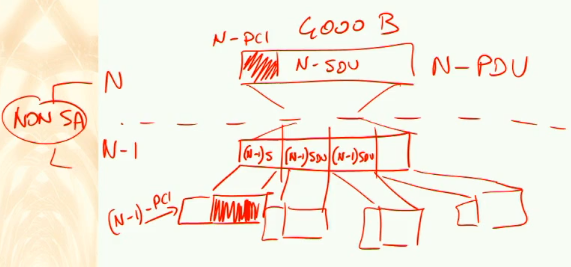 4000 B
N-PCI
N-SDU
N-PDU
N
NON SA
N-1
(N-1)S
(N-1)SDU
(N-1)SDU
(N-1)-PCI